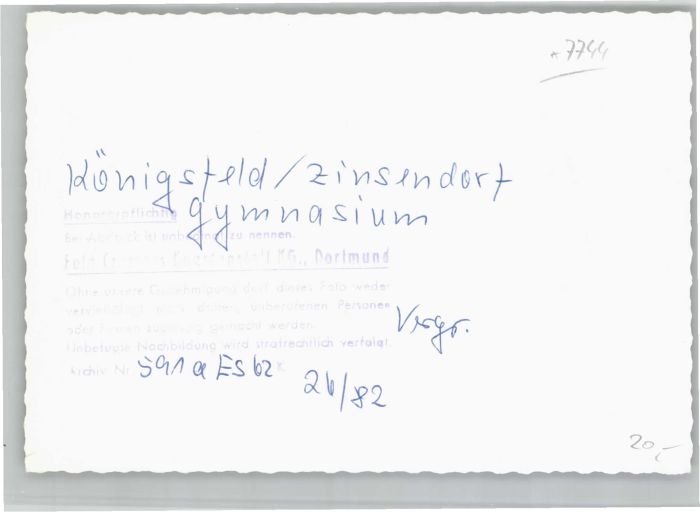 *7744
Königsfeld/Zinsendorf
gymnasium
Honorarpflichtig
Bei Abdruck ist zu nennen.
Foto KG., Dortmund
Ohne unsere Genehmigung darf dieses Foto weder
vervielfältigt noch dritten, unberufenen Personen
oder Firmen zugängig gemacht werden.
Vergr.
Unbefugte Nachbildung wird strafrechtlich verfolgt.
Archiv Nr. 591a ES 62
26/82
20,-